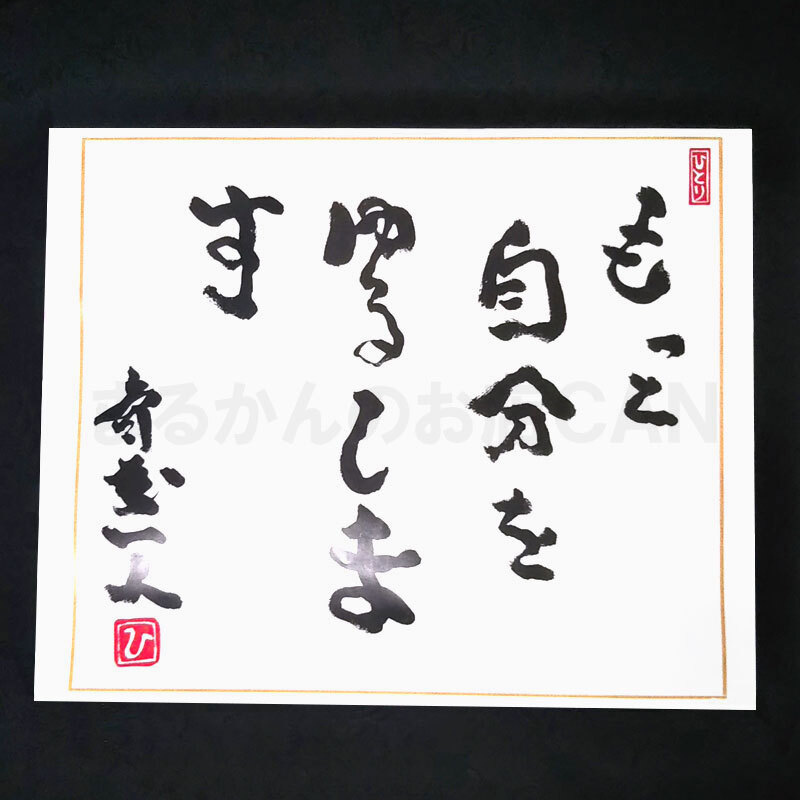 ひとり
もっと
自分を
ゆるしま
す
斎藤一人
ひ
まるかんのお店CAN